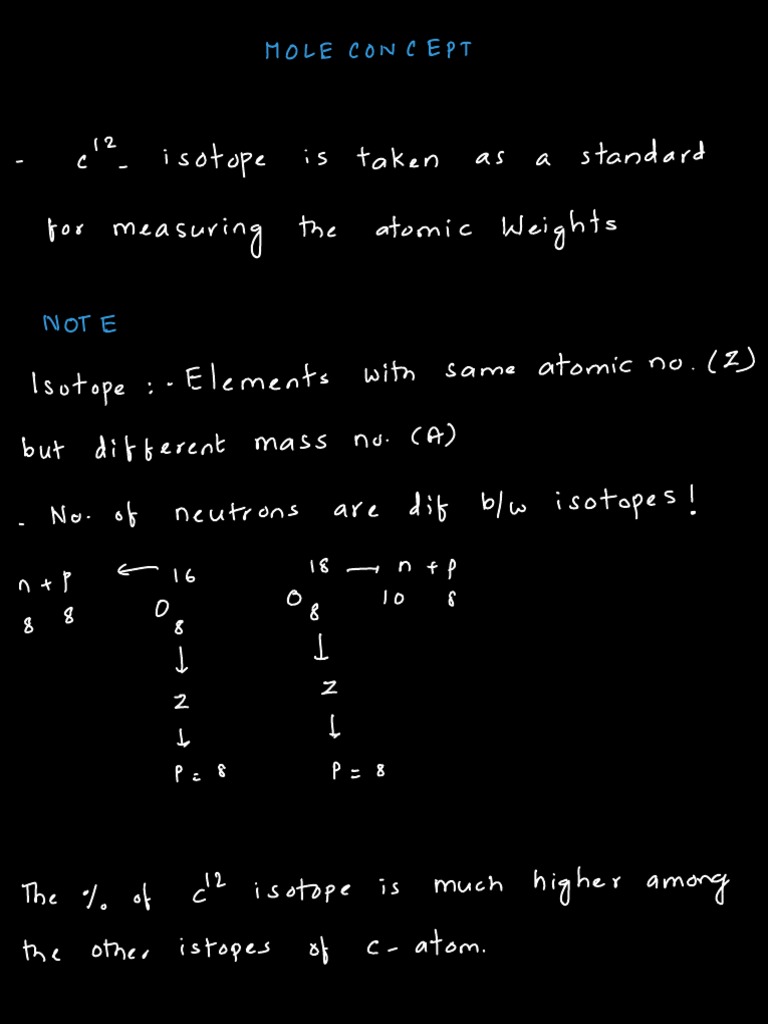 MOLE CONCEPT
- C¹² - isotope is taken as a standard
for measuring the atomic Weights
NOTE
Isotope :- Elements with same atomic no. (Z)
but different mass no. (A)
- No. of neutrons are dif b/w isotopes!
n + p ← 16 18 → n + p
8 8 O 8 O 8 10 8
↓ ↓
Z Z
↓ ↓
P = 8 P = 8
The % of C¹² isotope is much higher among
the other istopes of C- atom.